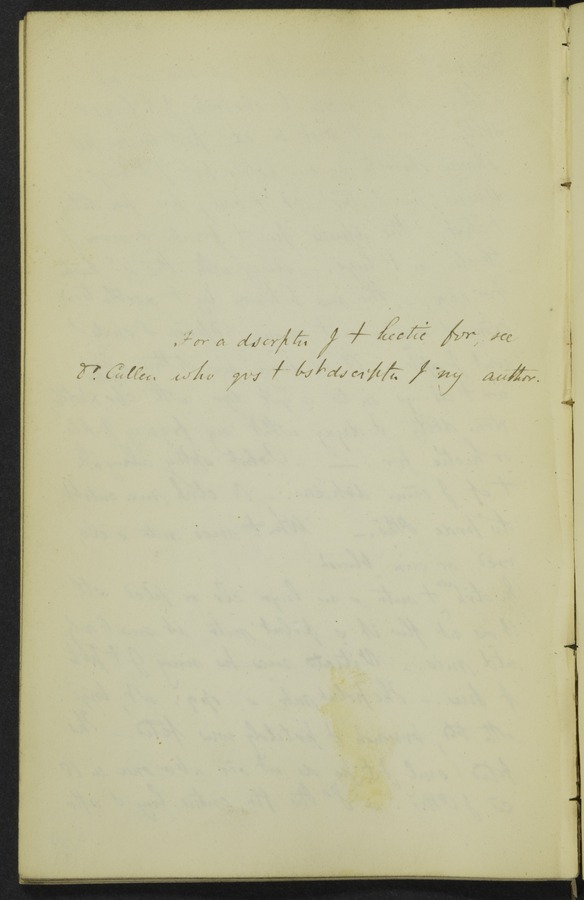 For a dscrptn f t hectic fvr, see
Dr. Cullen who gvs t bst dscriptn f ny author.